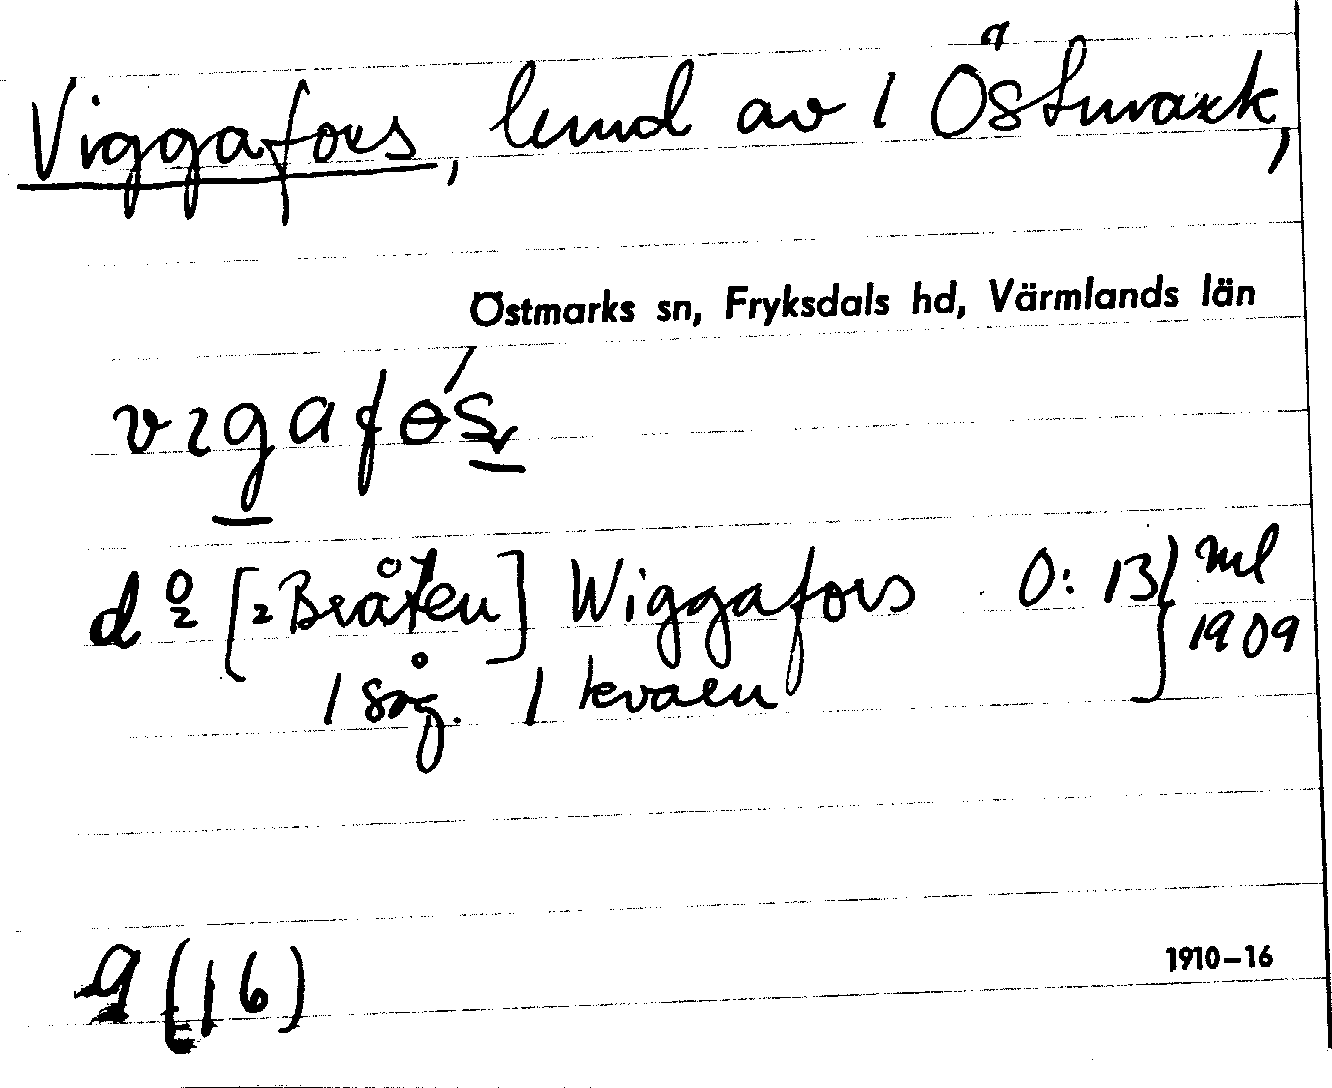 Viggafors, lund av 1 Östmark,
Östmarks sn, Fryksdals hd, Värmlands län
vıgafɵs
do [= Bråten] Wiggafors 0:13 } ml
1 såg. 1 kvarn 1909
9 (16)
1910–16